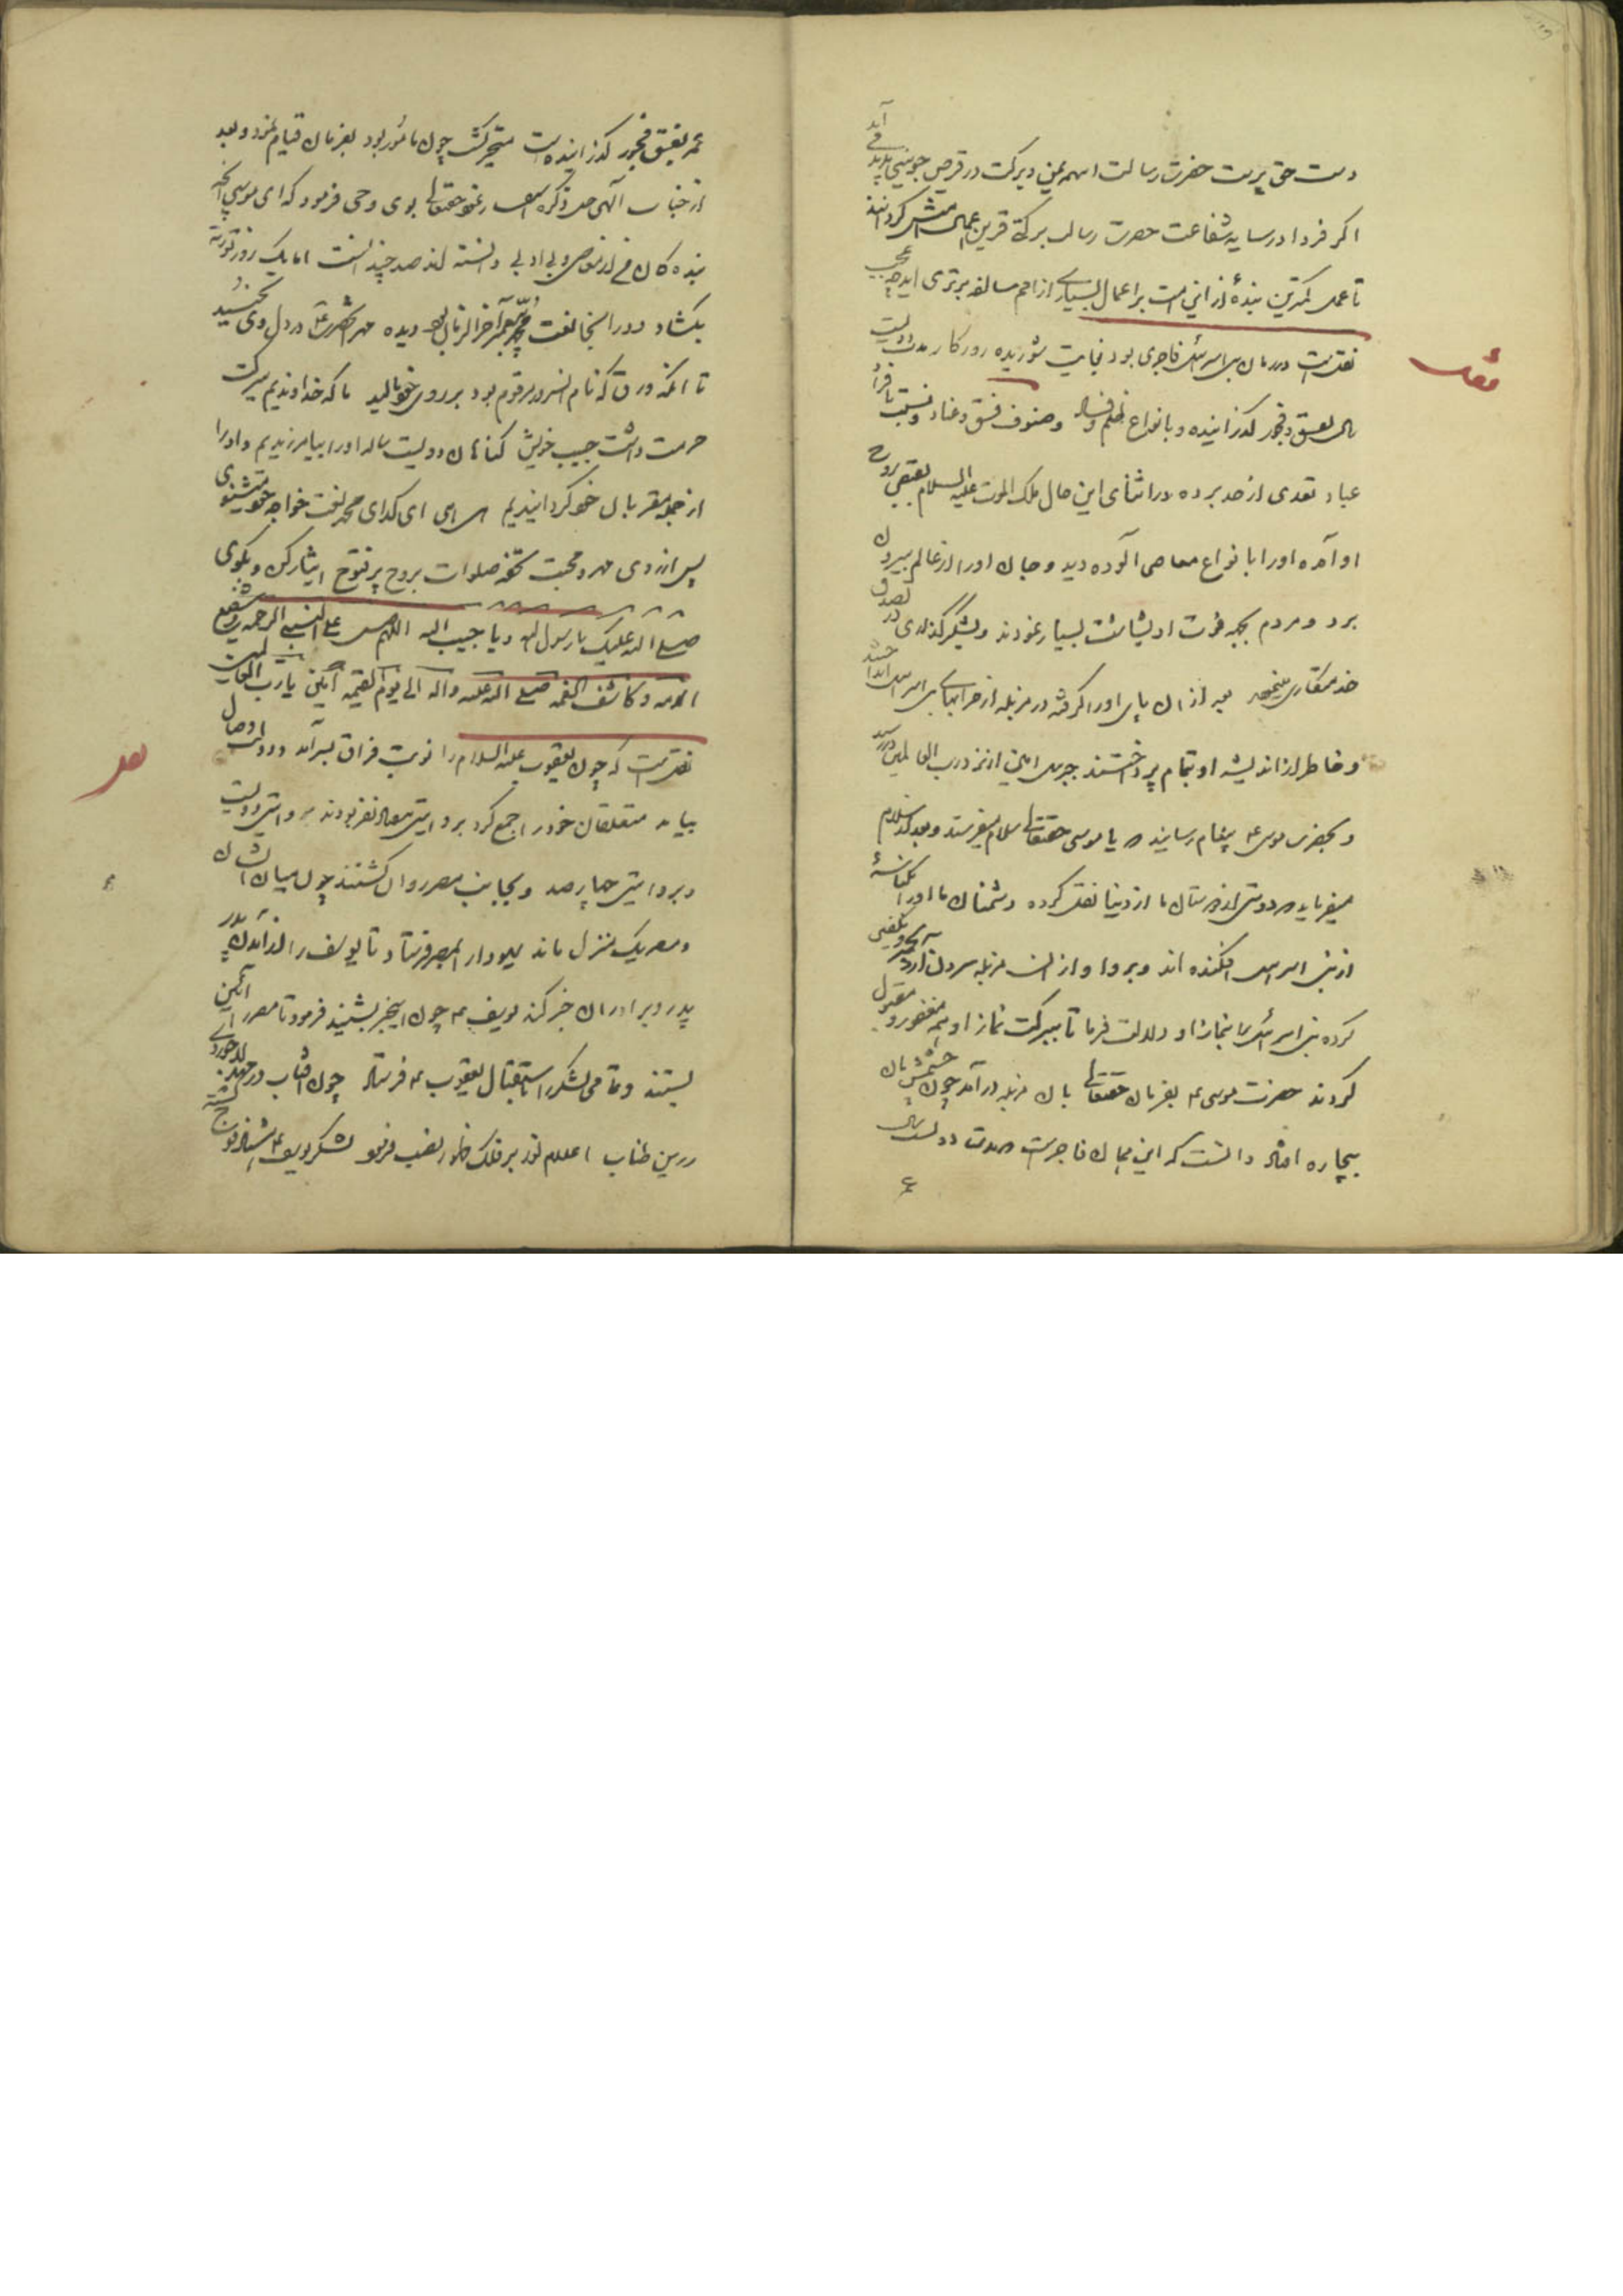 دست حق پرست حضرت رسالت این همه یمن و برکت در قرص جوینی پدید می آید
اگر فردا در سایه شفاعت حضرت رسالت برکتی قرین اعمال امتش گردانند
تا عمل کمترین بنده از این امت بر اعمال بسیاری از امم سالفه برتری یابد چه عجب
نقلست در زمان بنی اسرائیل فاجری بود بغایت شوریده روزگار مدت دویست
سال بفسق و فجور گذرانیده و بانواع ظلم و فساد و صنوف فسق و عناد و نسبت با افراد
عباد تعدی از حد برده در اثنای این حال ملک الموت علیه السلام بقبض روح
او آمده او را با نواع معاصی آلوده دید و جان او را از عالم بیرون
برد و مردم بجهه فوت او بشاشت بسیار نمودند و بشکرگذاری تصدق
بعد از آن پای او را گرفته در مزبله از خرابهای بنی اسرائیل انداختند
و خاطر از اندیشه او بتمام پرداختند جبرئیل امین از نزد رب العالمین در رسید
و بحضرت موسی ع پیغام رسانید که یا موسی حقتعالی سلام میفرستد و بعد از سلام
میفرماید که دوستی از دوستان ما از دنیا نقل کرده دشمنان ما او را
از بنی اسرائیل افکنده اند برو او را از آن مزبله بیرون آر و تجهیز و تکفین
کرده بنی اسرائیل را بنماز او دلالت فرما تا ببرکت نماز او همه مغفور و مقبول
گردند حضرت موسی ع بفرمان حقتعالی بان مزبله در آمد چون چشمش بان
بیچاره افتاد دانست که این همان فاجرست که مدت دویست سال
عمر بفسق و فجور گذرانیده است متحیر گشت چون مأمور بود بفرمان قیام نمود و بعد
از جناب الهی حقتعالی بوی وحی فرمود که ای موسی آنچه
بنده گان من از معاصی و بی ادبی دانسته اند صد چندانست اما یک روز توریة
بگشاد و در آنجا نعت محمد پیغمبر آخر الزمان دیده مهر آنحضرت در دل وی بجنبید
تا آنکه ورق که نام آن سرور مرقوم بود بر روی خود مالید ما که خداوندیم ببرکت
حرمت داشت حبیب خویش گناهان دویست ساله او را بیامرزیدیم و او را
از جمله مقربان خود گردانیدیم ای گدای محمد نعت خواجه خود میشنوی
پس از روی مهر و محبت تحفه صلوات بروح پر فتوح ایثار کن و بگوی
صلی الله علیک یا رسول الله و یا حبیب الله اللهم صل علی النبی الرحمه شفیع
الامه و کاشف الغمه صلی الله علیه و آله الی یوم القیمه آمین یا رب العالمین
نقلست که چون یعقوب علیه السلام را نوبت فراق بسر آمد و دولت وصال
بیامد متعلقان خود را جمع کرد بروایتی هفتاد نفر بودند و بروایتی دویست
و بروایتی چهار صد و بجانب مصر روان گشتند چون میان ایشان
و مصر یک منزل ماند یهودا را بمصر فرستاد تا یوسف را از آمدن پدر
پدر و برادران خبر کند یوسف ع چون این خبر بشنید فرمود تا مصر را آئین
بستند و تمامی لشکر را باستقبال یعقوب ع فرستاد چون آفتاب
زرین طناب اعلام نور بر فلک ظهور نصب فرمود لشکر یوسف ع